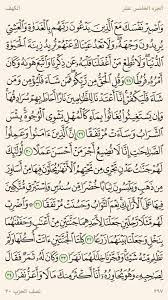 الجزء الخامس عشر
الكهف
وَٱصۡبِرۡ نَفۡسَكَ مَعَ ٱلَّذِينَ يَدۡعُونَ رَبَّهُم بِٱلۡغَدَوٰةِ وَٱلۡعَشِيِّ
يُرِيدُونَ وَجۡهَهُۥۖ وَلَا تَعۡدُ عَيۡنَاكَ عَنۡهُمۡ تُرِيدُ زِينَةَ ٱلۡحَيَوٰةِ
ٱلدُّنۡيَاۖ وَلَا تُطِعۡ مَنۡ أَغۡفَلۡنَا قَلۡبَهُۥ عَن ذِكۡرِنَا وَٱتَّبَعَ هَوَىٰهُ
وَكَانَ أَمۡرُهُۥ فُرُطٗا ٢٨ وَقُلِ ٱلۡحَقُّ مِن رَّبِّكُمۡۖ فَمَن شَآءَ فَلۡيُؤۡمِن
وَمَن شَآءَ فَلۡيَكۡفُرۡۚ إِنَّآ أَعۡتَدۡنَا لِلظَّٰلِمِينَ نَارًا أَحَاطَ بِهِمۡ
سُرَادِقُهَاۚ وَإِن يَسۡتَغِيثُواْ يُغَاثُواْ بِمَآءٖ كَٱلۡمُهۡلِ يَشۡوِي ٱلۡوُجُوهَۚ
بِئۡسَ ٱلشَّرَابُ وَسَآءَتۡ مُرۡتَفَقًا ٢٩ إِنَّ ٱلَّذِينَ ءَامَنُواْ
وَعَمِلُواْ ٱلصَّٰلِحَٰتِ إِنَّا لَا نُضِيعُ أَجۡرَ مَنۡ أَحۡسَنَ عَمَلًا ٣٠
أُوْلَٰٓئِكَ لَهُمۡ جَنَّٰتُ عَدۡنٖ تَجۡرِي مِن تَحۡتِهِمُ ٱلۡأَنۡهَٰرُ يُحَلَّوۡنَ فِيهَا
مِنۡ أَسَاوِرَ مِن ذَهَبٖ وَيَلۡبَسُونَ ثِيَابًا خُضۡرٗا مِّن سُندُسٖ
وَإِسۡتَبۡرَقٖ مُّتَّكِـِٔينَ فِيهَا عَلَى ٱلۡأَرَآئِكِۚ نِعۡمَ ٱلثَّوَابُ وَحَسُنَتۡ
مُرۡتَفَقٗا ٣١ ۞ وَٱضۡرِبۡ لَهُم مَّثَلٗا رَّجُلَيۡنِ جَعَلۡنَا لِأَحَدِهِمَا جَنَّتَيۡنِ مِنۡ أَعۡنَٰبٖ وَحَفَفۡنَٰهُمَا بِنَخۡلٖ
وَجَعَلۡنَا بَيۡنَهُمَا زَرۡعٗا ٣٢ كِلۡتَا ٱلۡجَنَّتَيۡنِ ءَاتَتۡ أُكُلَهَا
وَلَمۡ تَظۡلِم مِّنۡهُ شَيۡـٔٗاۚ وَفَجَّرۡنَا خِلَٰلَهُمَا نَهَرٗا ٣٣ وَكَانَ لَهُۥ ثَمَرٞ فَقَالَ
لِصَٰحِبِهِۦ وَهُوَ يُحَاوِرُهُۥٓ أَنَا۠ أَكۡثَرُ مِنكَ مَالٗا وَأَعَزُّ نَفَرٗا ٣٤
٢٩٧
نصف الحزب ٣٠